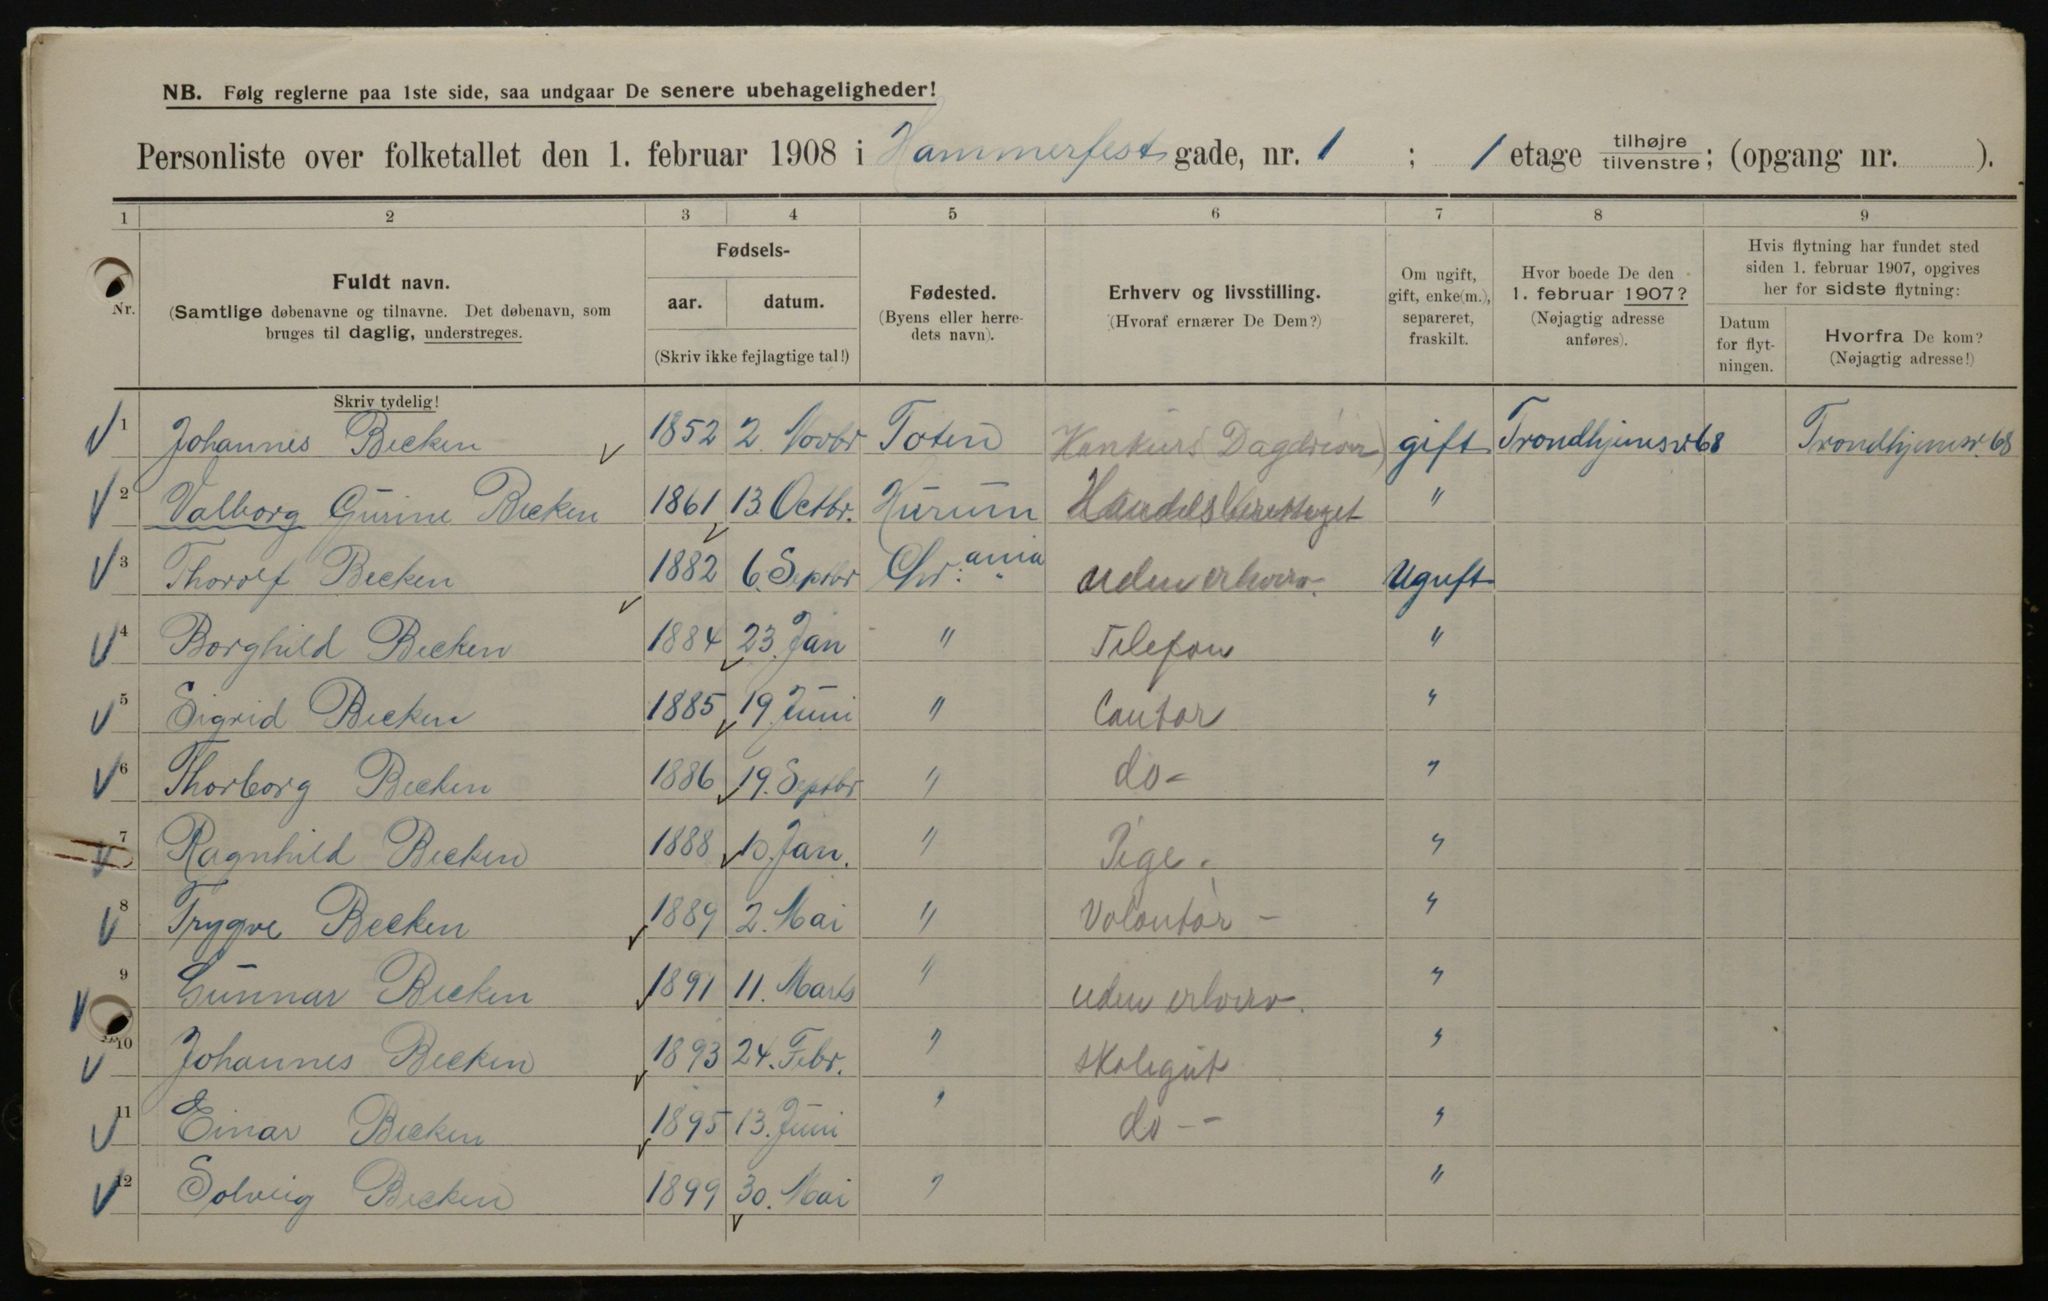 NB. Følg reglerne paa 1ste side, saa undgaar De senere ubehageligheder!
Personliste over folketallet den 1. februar 1908 i Hammerfest gade, nr. 1 ; 1 etage tilhøjre tilvenstre; (opgang nr. ).
1 2 3 4 5 6 7 8 9
Nr.
Fuldt navn.
(Samtlige døbenavne og tilnavne. Det døbenavn, som
bruges til daglig, understreges.
Fødsels-
aar. datum.
(Skriv ikke fejlagtige tal!)
Fødested.
(Byens eller herre-
dets navn).
Erhverv og livsstilling.
(Hvoraf ernærer De Dem?)
Om ugift,
gift, enke(m.),
separeret,
fraskilt.
Hvor boede De den
1. februar 1907?
(Nøjagtig adresse
anføres).
Hvis flytning har fundet sted
siden 1. februar 1907, opgives
her for sidste flytning:
Datum
for flyt-
ningen.
Hvorfra De kom?
(Nøjagtig adresse!)
Skriv tydelig!
1 Johannes Becken 1852 2. Novbr Toten (Dagdriver) gift Trondhjemsv 68 Trondhjemsv. 68
2 Valborg Gurine Becken 1861 13. Octbr. Hurum "
3 Thorolf Becken 1882 6. Septbr Chr.ania uden erhverv. Ugift
4 Borghild Becken 1884 23. Jan " Telefon "
5 Sigrid Becken 1885 19. Juni " Contor "
6 Thorborg Becken 1886 19. Septbr " do- "
7 Ragnhild Becken 1888 10. Jan. " Pige. "
8 Trygve Becken 1889 2. Mai " Volontør - "
9 Gunnar Becken 1891 11. Marts " uden erhverv. "
10 Johannes Becken 1893 24. Febr. " skolegut "
11 Einar Becken 1895 13. Juni " do-- "
12 Solveig Becken 1899 30. Mai " "